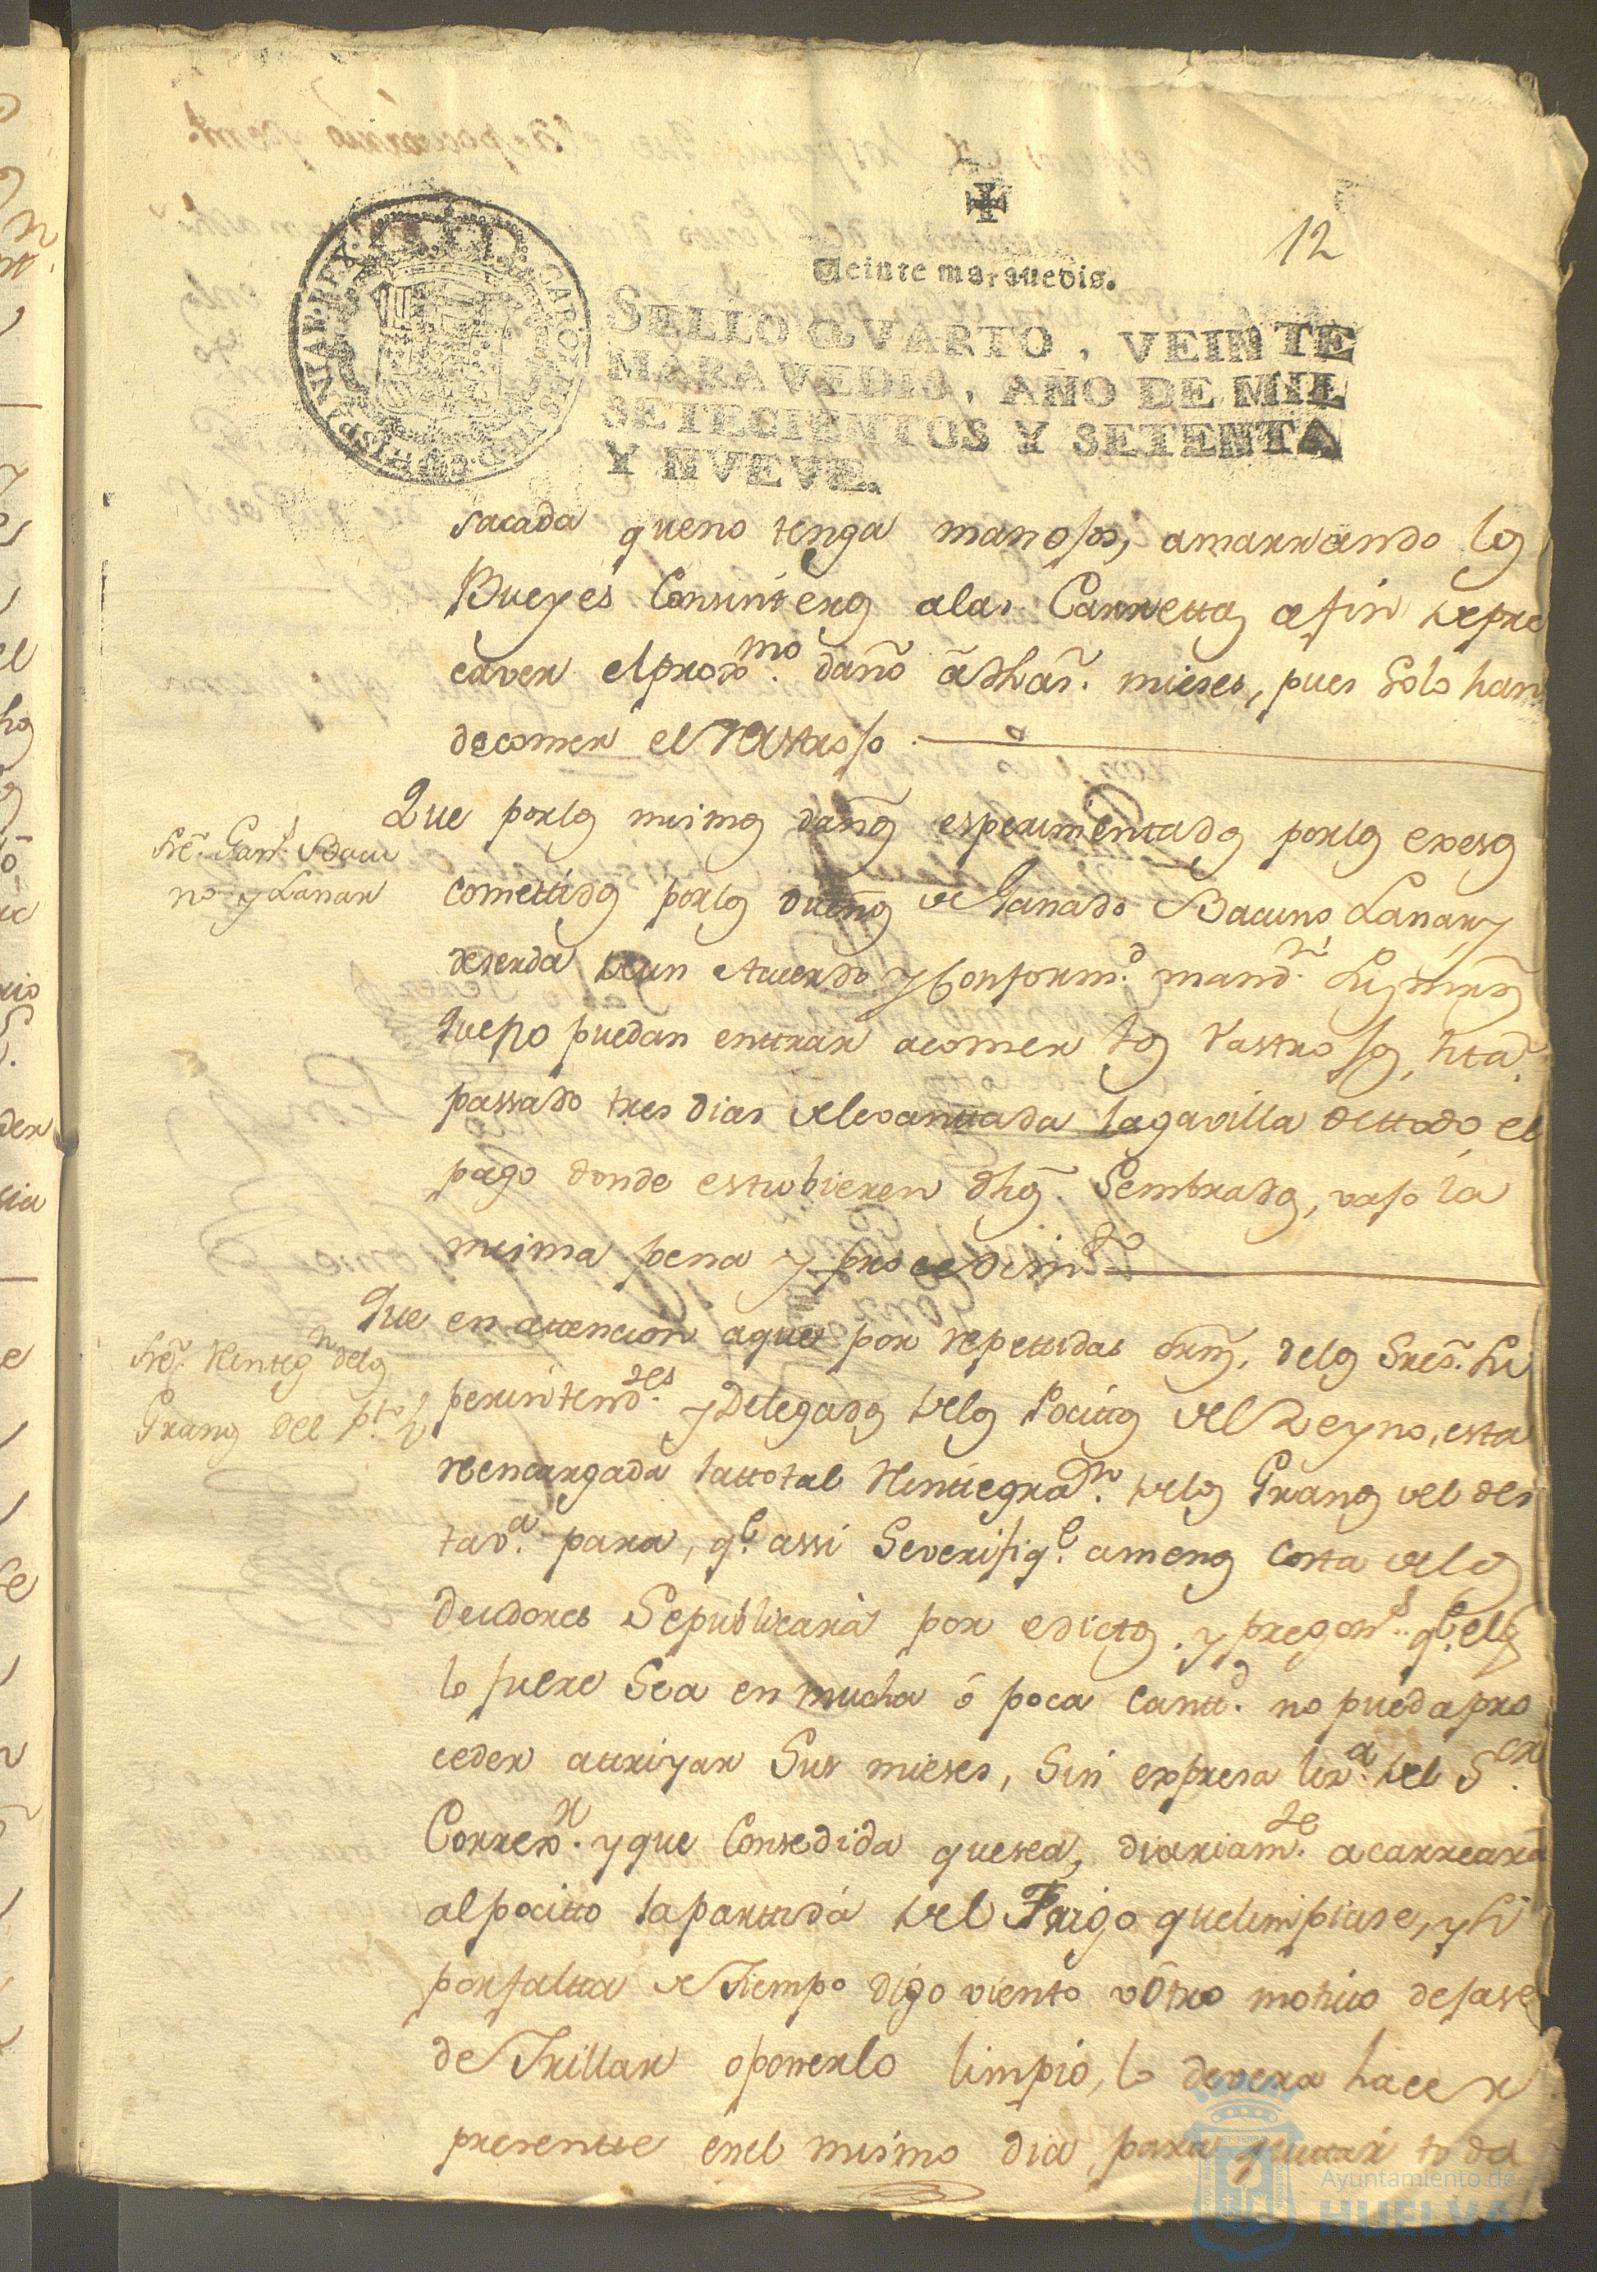 12
Veinte maravedis.
SELLO QVARTO, VEINTE
MARAVEDIS, AÑO DE MIL
SETECIENTOS Y SETENTA
Y NVEVE.
sacada queno tenga manojos, amarrando los
Bueyes Consinteros alas Carrettas afin depre
caver elproxmo. daño â dhas. mieses, pues Solo han
decomer el rastrojo
Sre. Gand. Bacu
no y Lanar
Que porlos mismos daños esperimentados porlos exesos
comettidos porlos dueños de Ganado Bacuno, Lanar y
deserda deun Acuerdo y Conformd. mandn. Sus mrds
Queno puedan enttrar acomer los rastrojos, htta
passado tres dias delevanttada lagavilla dettodo el
pago donde estubieren dhos. Sembrados, vajo la
misma pena y procedimto
Sre. Reintegn delos
Granos del Pto
Que en attencion aque por repettidas orns. delos Sres. Su
perintendtes. y Delegados delos Positos del Reyno, esta
reencargada lattotal Reintegran. delos Granos del des
tav.a para, qe. assi Severifiqe. amenos costa delos
deudores Sepublicara por edictos. y pregons. qe. elq
lo fuere Sea en mucha ó poca Cantd. no pueda pro
ceder attriyar Sus mieses, Sin expresa liza. del Sor.
Correxr. y que Consedida quesea, diariamte. acarreará
alpositto lapartida del Trigo quelimpiase, y Si
porfaltta de Tiempo digo viento v Otro motivo dejase
de Trillar oponerlo limpio, lo devera hacer
presentte enel mismo dia, para quittar toda
Ayuntamiento de
HUELVA